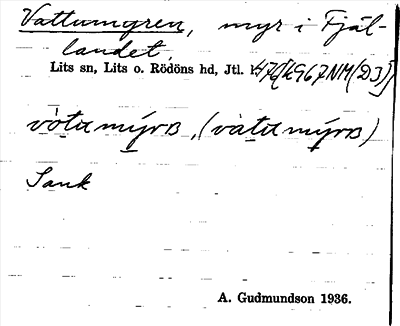 Vattumyren, myr i Fjäl-
landet,
Lits sn, Lits o. Rödöns hd, Jtl.
vótu mýrB, (vàtu mýrB)
Sank
A. Gudmundson 1936.